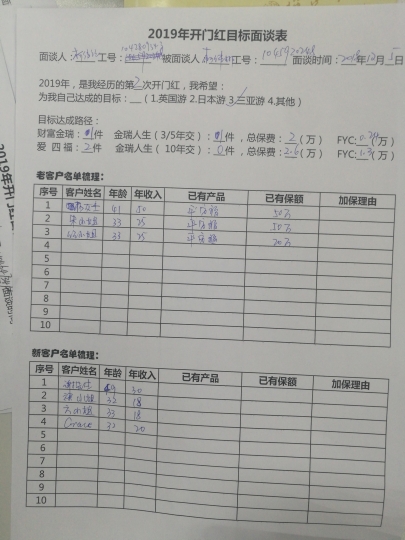 2019年开门红目标面谈表
面谈人: 工号: 被面谈人: 工号: 1045920248 面谈时间: 2018年12月5日
2019年，是我经历的第2次开门红，我希望：
为我自己达成的目标：__（1.英国游 2.日本游 3.三亚游 4.其他）
目标达成路径：
财富金瑞：1件 金瑞人生（3/5年交）：1件，总保费：2（万） FYC: （万）
爱 四 福：2件 金瑞人生（ 10年交）：0件，总保费：2.6（万） FYC:1.3（万）
老客户名单梳理：
序号 客户姓名 年龄 年收入 已有产品 已有保额 加保理由
1 女士 41 50 平安福 50万
2 小姐 33 25 平安福 50万
3 小姐 33 25 平安福 20万
4
5
6
7
8
9
10
新客户名单梳理：
序号 客户姓名 年龄 年收入 已有产品 已有保额 加保理由
1 49 30
2 小姐 32 18
3 小姐 33 18
4 Grace 32 20
5
6
7
8
9
10
2019年开